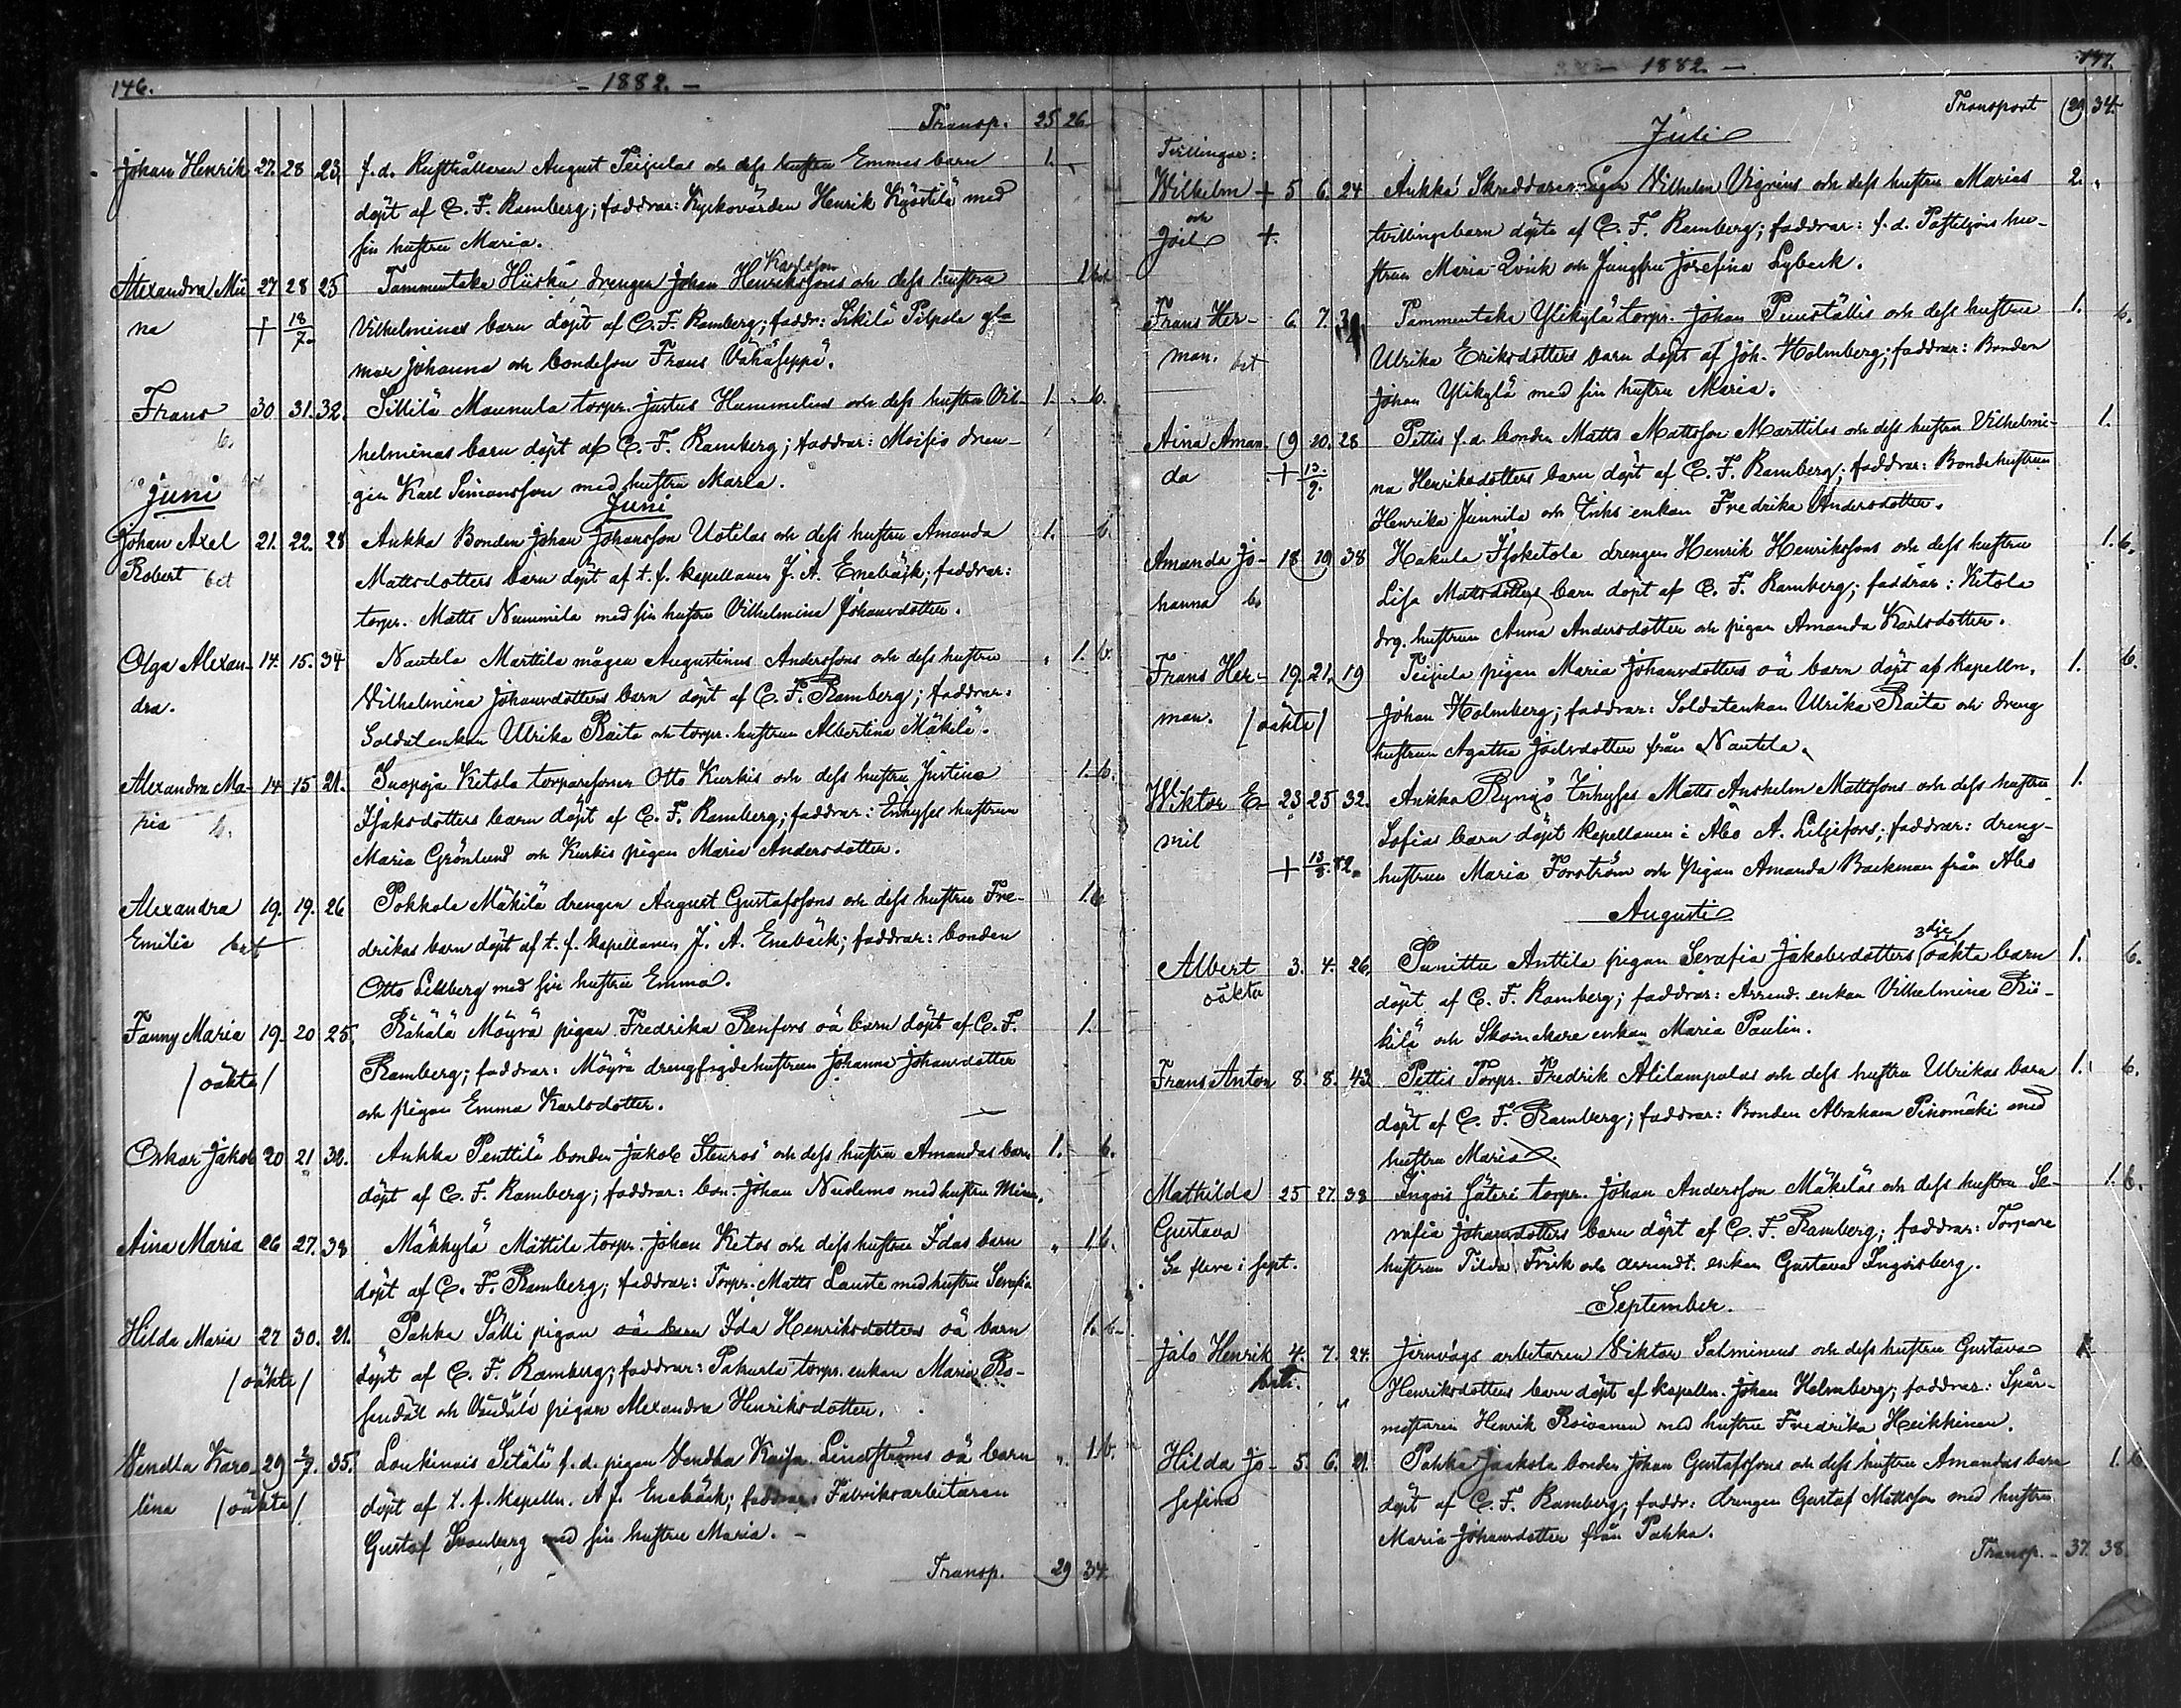 146. - 1882. -
Transp. 25 26
Johan Henrik 27. 28 23. f. d. Rusthållaren August Teijulas och dess hustru Emmas barn 1. -
döpt af C. F. Ramberg; faddrar: Kyrkovärden Henrik Kyöstilä med
sin hustru Maria.
Karlsson
Alexandra Mii 27 28 25 Tammentaka Huisku drengen Johan Henrikssons och dess hustru 1
na + 18/7. Vilhelminas barn döpt af C. F. Ramberg; faddr: Pilpola
mor Johanna och bondeson Frans Vähäseppä.
Frans 30 31. 32. Sillilä Maunula torpr. Justus Hummelins och dess hustru Vil- 1. b.
b. helminas barn döpt af C. F. Ramberg; faddrar: Moisio dren-
gen Karl Simonsson med hustru Maria.
Juni Juni
Johan Axel 21. 22. 28 Aukka Bonden Johan Johansson Uotilas och dess hustru Amanda 1. b.
Robert bet Mattsdotters barn döpt af t. f. kapellanen J. A. Enebäck; faddrar:
torpr. Matts Nummila med sin hustru Vilhelmina Johansdotter.
Olga Alexan- 14. 15. 34 Nautela Marttila mågen Augustinus Anderssons och dess hustru " 1. b.
dra. Vilhelmina Johansdotters barn döpt af C. F. Ramberg; faddrar:
Soldatenkan Ulrika Raita och torpr. hustrun Albertina Mäkelä.
Alexandra Ma- 14 15 21. Suopoja Ketola torparesonen Otto Kurkis och dess hustru Justina 1. b.
ria b. Isaksdotters barn döpt af C. F. Ramberg; faddrar: Inhyses hustrun
Maria Grönlund och Kurkis pigan Maria Andersdotter.
Alexandra 19. 19. 26 Pokkola Mäkilä drengen August Gustafssons och dess hustru Fre- " 1. b
Emilia bet drikas barn döpt af t. f. kapellanen J. A. Enebäck; faddrar: bonden
Otto Lillberg med sin hustru Emma.
Fanny Maria 19. 20 25. Rähälä Möyrä pigan Fredrika Renfors oä barn döpt af C. F. 1.
/oäkta/ Ramberg; faddrar: Möyrä drengfogdehustrun Johanna Johansdotter
och pigan Emma Karlsdotter.
Oskar Jakob 20 21 32. Aukka Penttilä bonden Jakob Stenros' och dess hustru Amandas barn 1. b.
döpt af C. F. Ramberg; faddrar: bon. Johan Nuolemo med hustru Mina.
Aina Maria 26 27. 38 Mäkkylä Mattila torpr. Johan Ketos och dess hustru Idas barn " 1. b.
döpt af C. F. Ramberg; faddrar: Torpr. Matts Lauste med hustru Serafia
Hilda Maria 27 30. 21. Pahka Sälli pigan oä barn Ida Henriksdotters oä barn 1. b.
/oäkta/ döpt af C. F. Ramberg; faddrar: Pakurla torpr. enkan Maria Ro-
sendal och pigan Alexandra Henriksdotter.
Vendla Karo- 29 2/7. 35. Loukinais Sitälä f. d. pigan Vendla Kaisa Lindströms oä barn " 1. b.
lina /oäkta/ döpt af t. f. kapelln. A J. Enebäck; faddrar: Fabriksarbetaren
Gustaf Svanberg med sin hustru Maria. -
Transp. 29 34.
- 1882. - 147.
Transport 29 34
Juli
Tvillingar:
Wilhelm + 5 6. 24 Aukka Skreddaremågen Vilhelm Vigrius och dess hustru Marias 2. "
och tvillingsbarn döpte af C. F. Ramberg; faddrar: f. d. hu-
Joel + strun Maria Qvick och Jungfru Josefina Lybeck.
Frans Her- 6 7. Tammentaka Ylikylä torpr. Johan Punställis och dess hustru 1. b.
man. bet Ulrika Eriksdotters barn döpt af Joh. Holmberg; faddrar: Bonden
Johan Ylikylä med sin hustru Maria.
Aina Aman- 19 20. 28 Pettis f. d. bonden Matts Mattsson Marttilas och dess hustru Vilhelmi- 1.
da + 13/9. na Henriksdotters barn döpt af C. F. Ramberg; faddrar: Bondehustrun
Henrika Junnila och Inhs enkan Fredrika Andersdotter.
Amanda Jo- 18 19 38 Hakula Isoketola drengen Henrik Henrikssons och dess hustru 1. b.
hanna b. Lisa Mattsdotters barn döpt af C. F. Ramberg; faddrar: Ketola
drg. hustrun Anna Andersdotter och pigan Amanda Karlsdotter.
Frans Her- 19. 21. 19 Teijula pigan Maria Johansdotters oä barn döpt af kapelln. 1. b.
man. /oäkta/ Johan Holmberg; faddrar: Soldatenkan Ulrika Raita och dreng
hustrun Agatha Joelsdotter från Nautela.
Wiktor E- 23 25 32. Aukka Ryngö Inhyses Matts Anshelm Mattssons och dess hustru 1.
mil Sofias barn döpt kapellanen i Åbo A. Liljefors; faddrar: dreng-
+ 13/8. 82. hustrun Maria Forström och pigan Amanda Backman från Åbo
Augusti
3dje
Albert 3. 4. 26. Punittu Anttila pigan Serafia Jakobsdotters oäkta barn 1. b.
oäkta döpt af C. F. Ramberg; faddrar: Arrend. enkan Vilhelmina Rii-
kilä och Skomakare enkan Maria Paulin.
Frans Anton 8. 8. 43 Pettis Torpr. Fredrik Alilampolas och dess hustru Ulrikas barn 1. b.
döpt af C. F. Ramberg; faddrar: Bonden Abraham Pinomäki med
hustru Maria.
Mathilda 25 27. 38 Ingois Säteri torpr. Johan Andersson Mäkeläs och dess hustru Se- 1. b.
Gustava rafia Johansdotters barn döpt af C. F. Ramberg; faddrar: Torpare
Se flere i sept. hustrun Tilda Frisk och arrendt. enkan Gustava Ingoisberg.
September.
Jalo Henrik 4. 7. 24. Jernvägs arbetaren Viktor Salminens och dess hustru Gustava 1.
Henriksdotters barn döpt af kapelln. Johan Holmberg; faddrar: Spår-
mästaren Henrik Roivanen med hustru Fredrika Heikkinen.
Hilda Jo- 5. 6. 21. Pahka Jaakola bonden Johan Gustafssons och dess hustru Amandas barn 1. b
sefina döpt af C. F. Ramberg; faddr: drengen Gustaf Mattsson med hustru
Maria Johansdotter från Pahka.
Transp. - 37. 38.